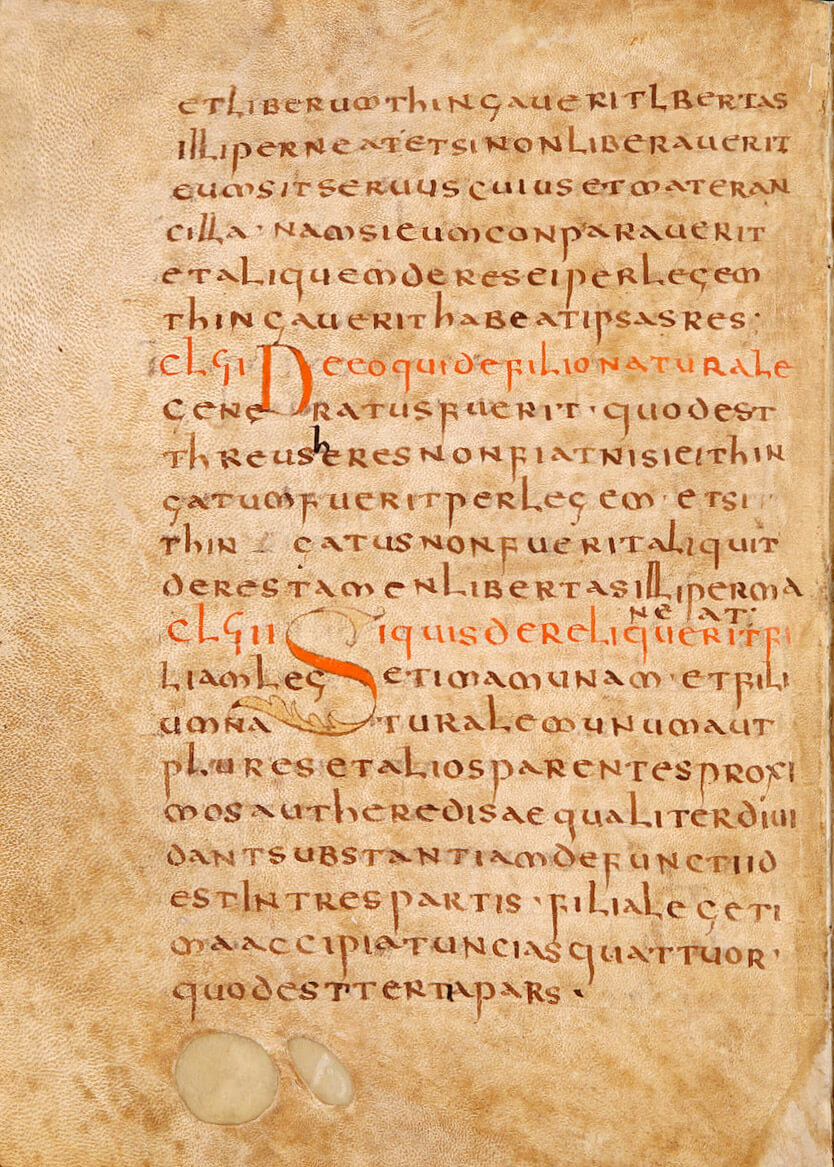 et liberum thingauerit lbertas
illi perneat et si non liberauerit
eum sit seruus cuius et mater an
cilla · nam si eum conparauerit
et aliquem de res ei per legem
thingauerit habeat ipsas res :·
CLGI De eo qui de filio naturale
generatus fuerit · quod est
threus heres non fiat nisi ei thin
gatum fuerit per legem · et si
thingatus non fuerit aliquit
de res tamen libertas illi perma
neat :·
CLGII Si quis dereliquerit fi
liam legetimam unam · et fili
um naturalem unum aut
plures et alios parentes proxi
mos aut heredis aequaliter diui
dant substantiam defuncti id
est in tres partis · filia legeti
ma accipiat uncias quattuor ·
quod est tertia pars ·